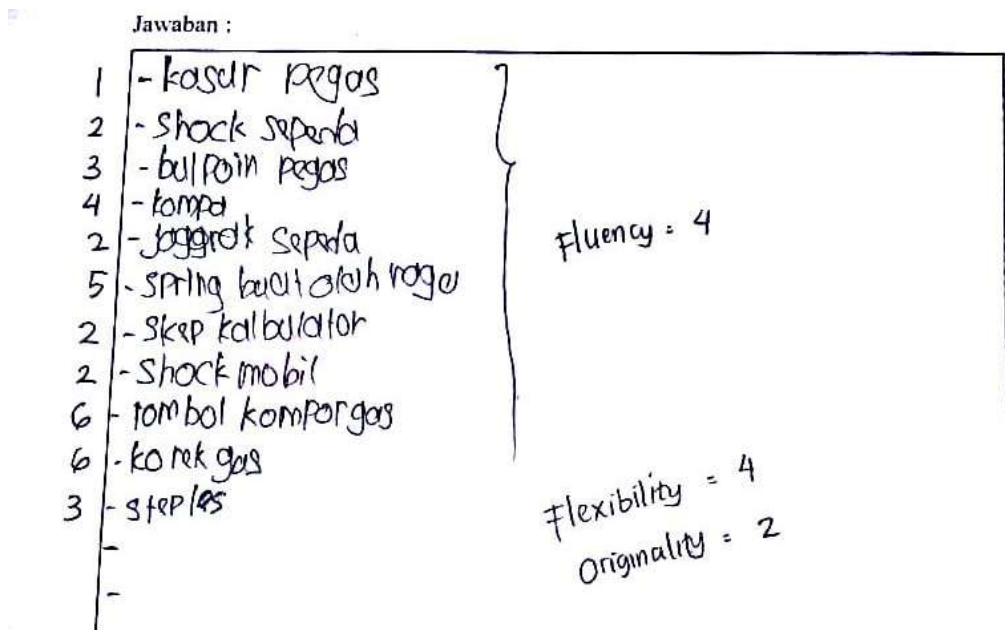 Jawaban :
1 - kasur pegas
2 - Shock sepeda
3 - bulpoin pegas
4 - pompa
2 - Jaggrak sepeda
5 - spring buat olah raga
2 - skep kalbulator
2 - Shock mobil
6 - tombol kompor gas
6 - korek gas
3 - steples
-
-
Fluency = 4
Flexibility = 4
Originality = 2